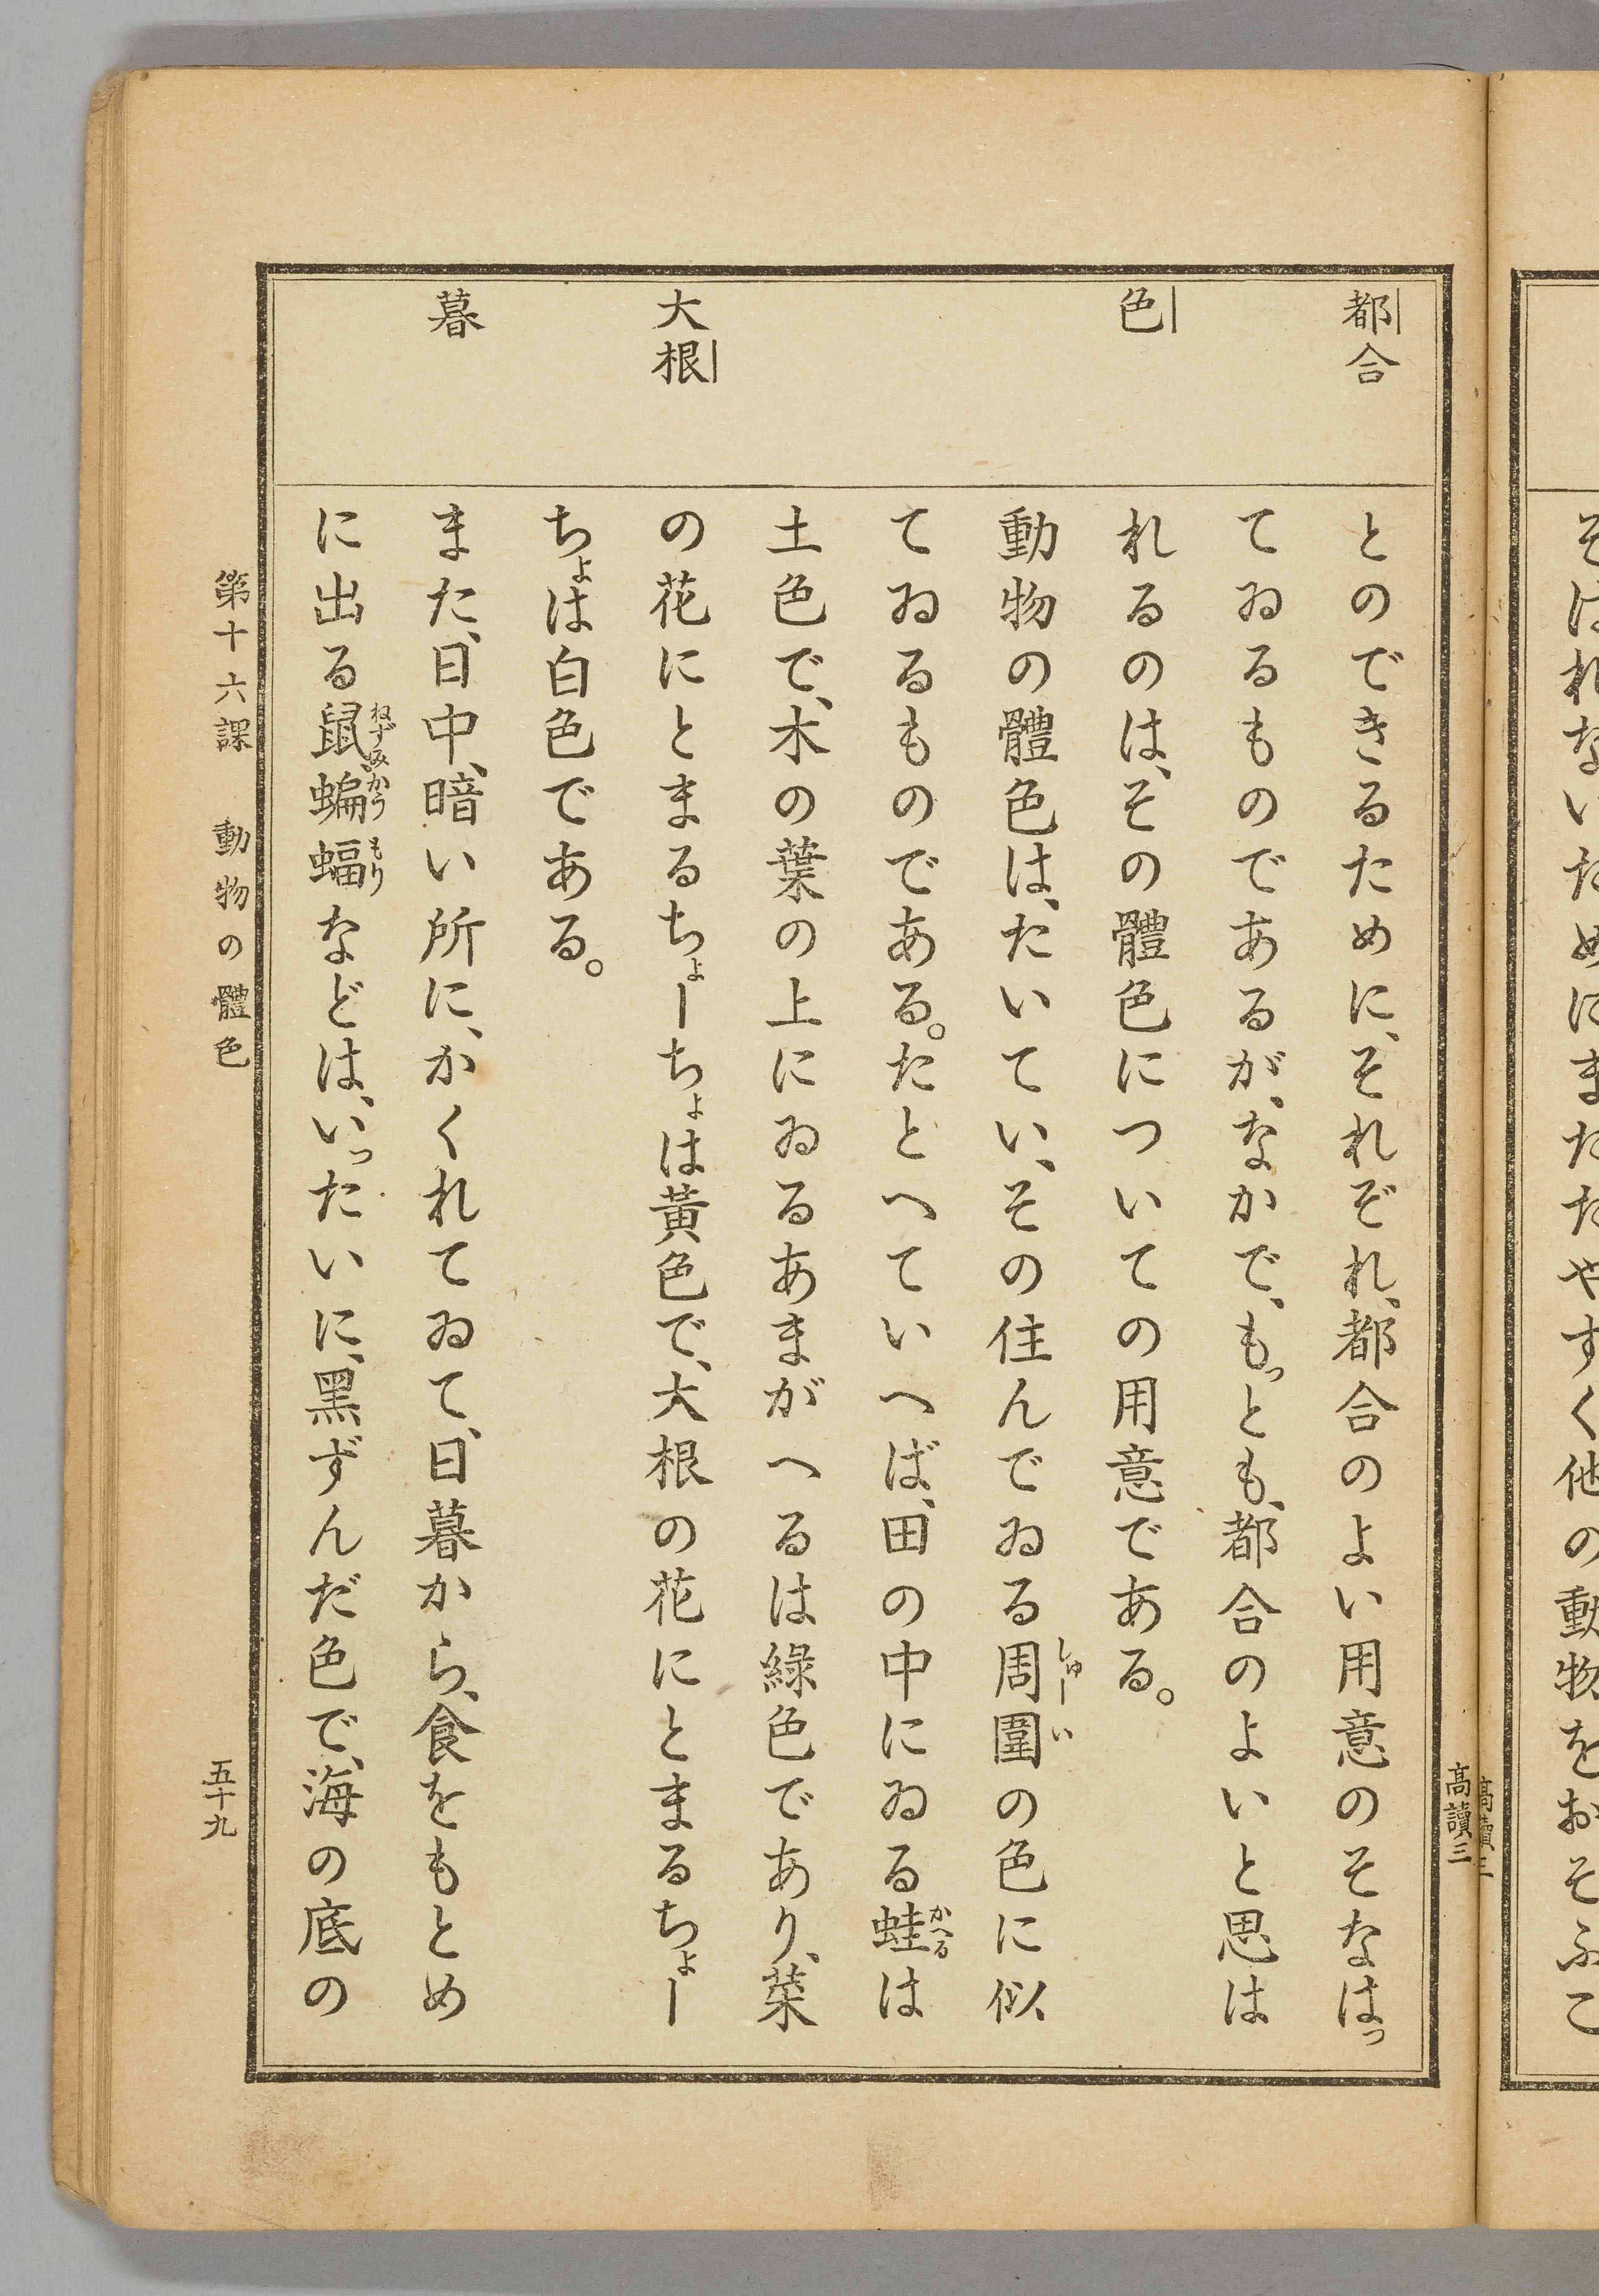 そはれないためにまたたやすく他の動物をおそふこ
高讀三
高讀三
都合
色
大根
暮
とのできるために、それぞれ、都合のよい用意のそなはっ
てゐるものであるが、なかで、もっとも、都合のよいと思は
れるのは、その體色についての用意である。
動物の體色は、たいてい、その住んでゐる周圍の色に似
しゅーい
てゐるものである。たとへていへば、田の中にゐる蛙は
かへる
土色で、木の葉の上にゐるあまがへるは綠色であり、菜
の花にとまるちょーちょは黃色で、大根の花にとまるちょー
ちょは白色である。
また、日中、暗い所に、かくれてゐて、日暮から、食をもとめ
に出る鼠、蝙蝠などは、いったいに、黑ずんだ色で、海の底の
ねずみ
かうもり
第十六課 動物の體色
五十九